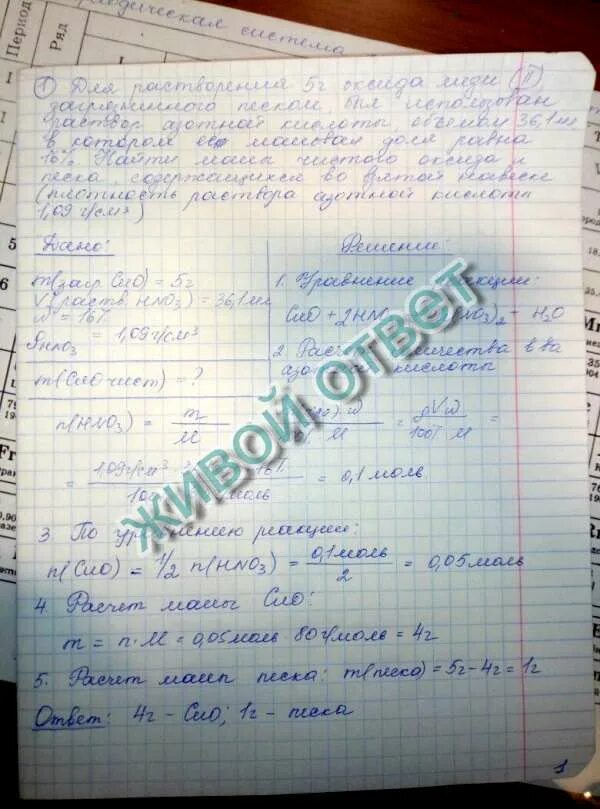 Период
Ряд
система
1 Для растворения 5г оксида меди (II)
загрязнённого песком, был использован
раствор азотной кислоты, объемом 36,1 мл
в котором её массовая доля равна
16%. Найти массы чистого оксида и
песка, содержащихся во взятой навеске
(плотность раствора азотной кислоты
1,09 г/см³)
Дано:
m(загр. CuO) = 5г
V(раств. HNO₃) = 36,1 мл
W = 16%
ρHNO₃ = 1,09 г/см³
m(CuO чист) = ?
Решение:
1. Уравнение реакции:
CuO + 2HN NO₃)₂ + H₂O
2. Рас ества в-ва
азот кислоты
n(HNO₃) = m/M = ) · W / % · M = ρVW / 100% · M =
= 1,09 г/см³ 16% / 10 моль = 0,1 моль
3. По уравнению реакции:
n(CuO) = 1/2 n(HNO₃) = 0,1 моль / 2 = 0,05 моль
4. Расчет массы CuO:
m = n · M = 0,05 моль · 80 г/моль = 4г
5. Расчет массы песка: m(песка) = 5г - 4г = 1г
Ответ: 4г - CuO; 1г - песка
1
ЖИВОЙ ОТВЕТ